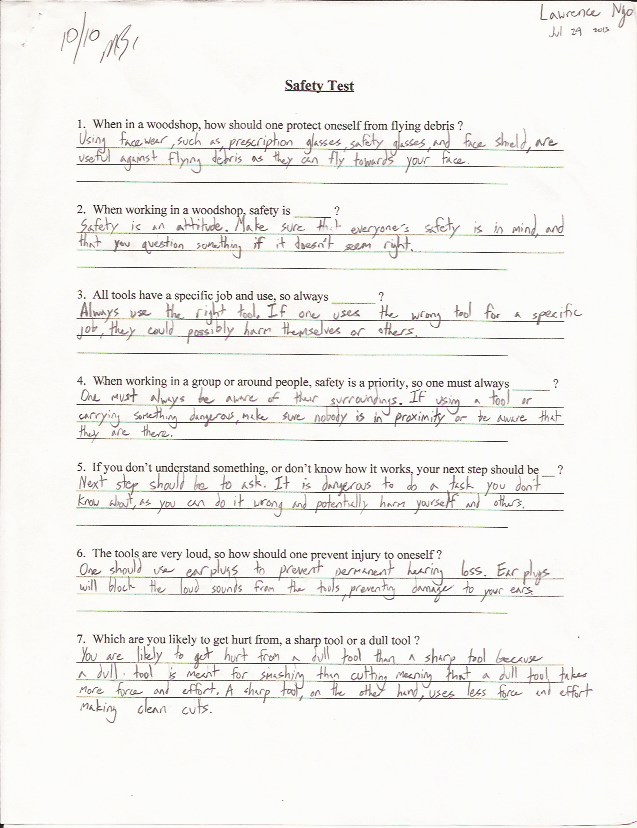 Lawrence Ngo
Jul 29 2013
10/10
Safety Test
1. When in a woodshop, how should one protect oneself from flying debris ?
Using facewear, such as prescription glasses, safety glasses, and face shield, are
useful against flying debris as they can fly towards your face.
2. When working in a woodshop, safety is ______ ?
Safety is an attitude. Make sure that everyone's safety is in mind, and
that you question something if it doesn't seem right.
3. All tools have a specific job and use, so always _______ ?
Always use the right tool. If one uses the wrong tool for a specific
job, they could possibly harm themselves or others.
4. When working in a group or around people, safety is a priority, so one must always ______ ?
One must always be aware of their surroundings. If using a tool or
carrying something dangerous, make sure nobody is in proximity or be aware that
they are there.
5. If you don't understand something, or don't know how it works, your next step should be __ ?
Next step should be to ask. It is dangerous to do a task you don't
know about, as you can do it wrong and potentially harm yourself and others.
6. The tools are very loud, so how should one prevent injury to oneself ?
One should use ear plugs to prevent permanent hearing loss. Ear plugs
will block the loud sounds from the tools, preventing damage to your ears.
7. Which are you likely to get hurt from, a sharp tool or a dull tool ?
You are likely to get hurt from a dull tool than a sharp tool because
a dull tool is meant for smashing than cutting meaning that a dull tool takes
more force and effort. A sharp tool, on the other hand, uses less force and effort
making clean cuts.